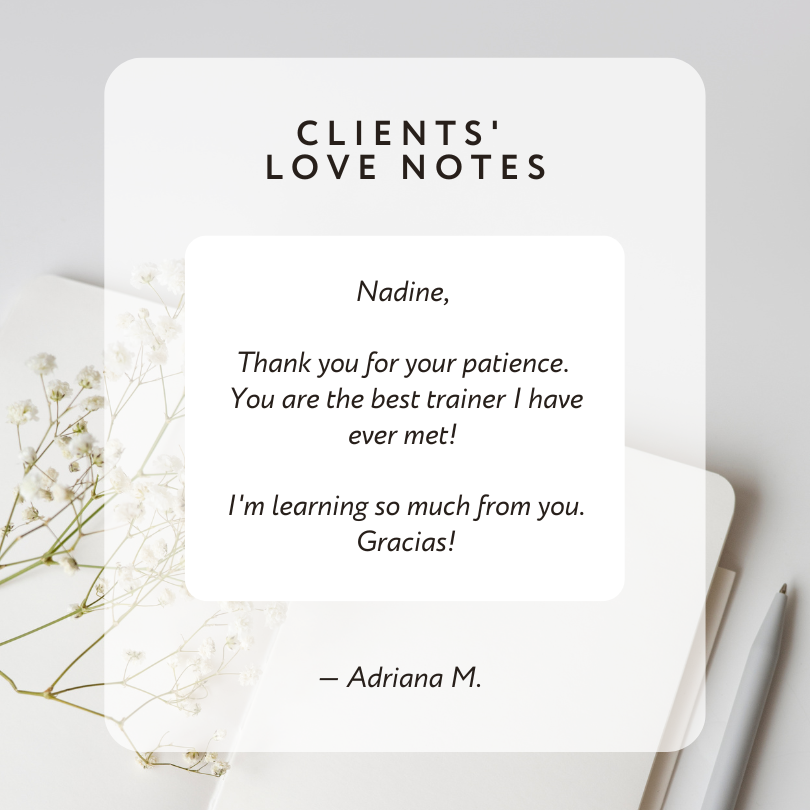 CLIENTS'
LOVE NOTES
Nadine,
Thank you for your patience.
You are the best trainer I have
ever met!
I'm learning so much from you.
Gracias!
– Adriana M.